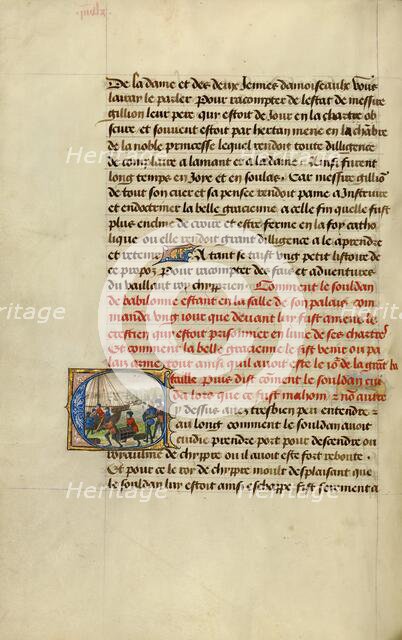 De la dame et des deux Jennes damoiseaulx vous
lairay le parler Pour racompter de lestat de messire
gillion leur pere qui estoit de Jour en la chartre ob
scure et souvent estoit par hertan mene en la chãbre
de la noble princesse lequel rendoit toute dilligence
de complaire a lamant et a la dame Ainsi furent
long temps en Joye et en soulas Car messire gilliõ
de tout son cuer et sa pensee rendoit paine a Instruire
et endoctriner la belle gracienne a celle fin quelle fust
plus encline de croire et estre ferme en la foy catho
lique ou elle rendoit grant dilligence a le aprendre
et retenir A tant se taist ung petit listoire de
ce propoz Pour racompter des fais et adventures
du vaillant roy chyprien Comment le souldan
de babilonne estant en la salle de son palais com
manda ung Jour que devant luy fust amene le
crestien qui estoit prisonnier en lune de ses chartres
Et comment la belle gracienne le fist venir ou pa
lais arme tout ainsi quil avoit este le Jour de la grant ba
taille Puis dist coment le souldan cui
da lors que ce fust mahom nõ autre
y dessus avez tresbien peu entendre
au long comment le souldan avoit
cuidie prendre port pour descendre ou
royaulme de chyppre ou il avoit este fort reboute
Et pour ce le roy de chyppre moult desplaisant que
le souldan luy estoit ainsi eschappe fist serement a
Heritage
Heritage
Heritage
Heritage
Heritage
Heritage